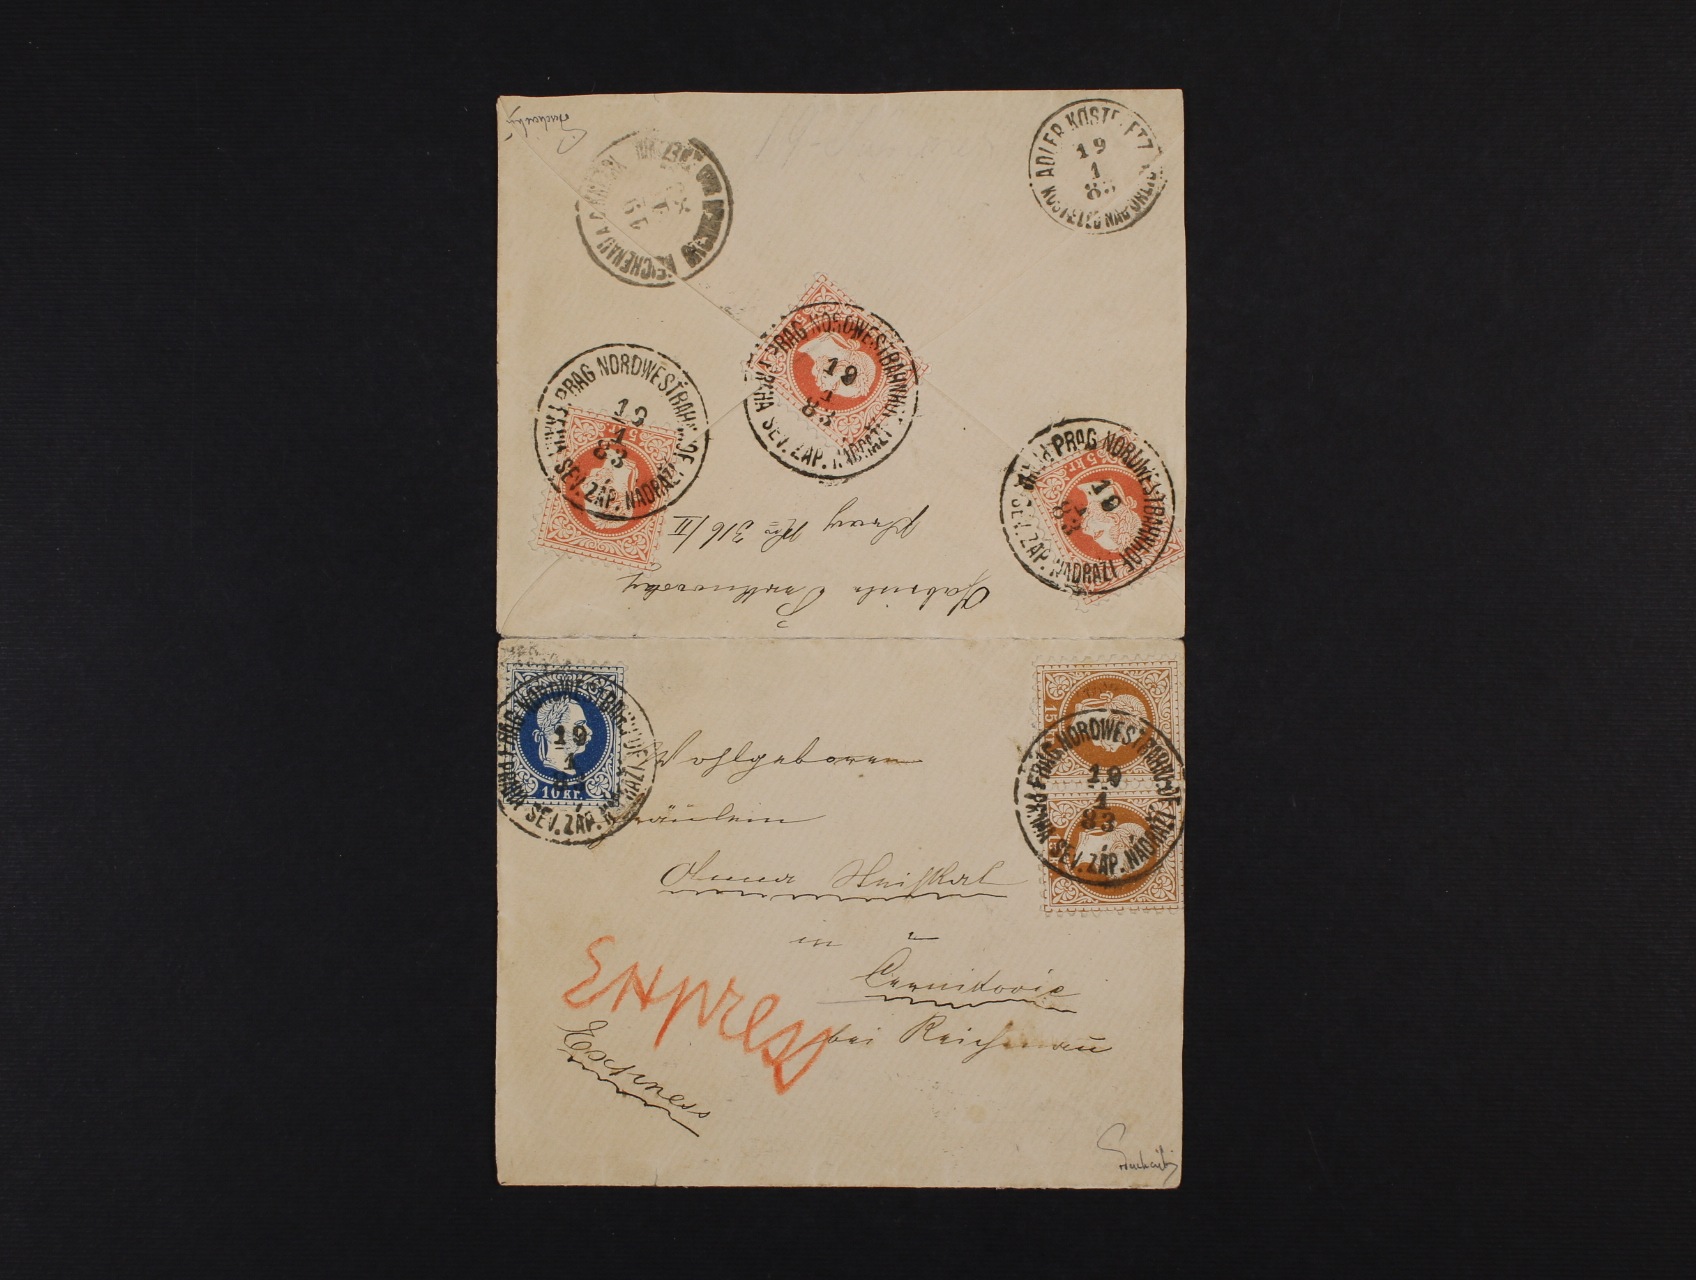 ADLER KOSTELETZ
19
1
83
KOSTELEC NAD ORLICÍ
REICHENAU A.D.
19
PRAG NORDWESTBAHNHOF
19
1
83
PRAHA SEV. ZÁP. NÁDRAŽÍ
5 kr.
PRAG NORDWESTBAHNHOF
19
1
83
PRAHA SEV. ZÁP. NÁDRAŽÍ
5 kr.
PRAG NORDWESTBAHNHOF
19
1
83
PRAHA SEV. ZÁP. NÁDRAŽÍ
5 kr.
Prag No 316/II
PRAG NORDWESTBAHNHOF
19
1
83
PRAHA SEV. ZÁP. NÁDRAŽÍ
10 kr.
PRAG NORDWESTBAHNHOF
19
1
83
PRAHA SEV. ZÁP. NÁDRAŽÍ
15
Wohlgeboren
Fräulein
Anna
in
Černikovic
bei Reichenau
Express
Express